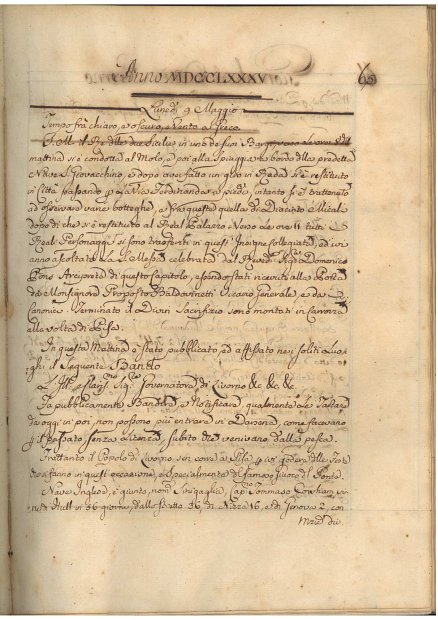 Anno MDCCLXXXV
65
Lunedì 9 Maggio
Tempo frà chiaro, e oscuro, e Vento a Greco
S. M. il Rè delle due Sicilie in uno de suoi Bargi verso le ore
mattina si è condotto al Molo, e poi alla Spiaggia a bordo della predetta
Nave S. Giovacchino, e dopo aver fatto un giro in Rada si è restituito
in Città passando per la Via Ferdinanda a piedi, intanto si è trattenuto
ad osservare varie botteghe, e frà queste quella di Diacinto Micali
dopo di che si è restituito al Real Palazzo. Verso le ore 11 tutti i
Reali Personaggi si sono trasferiti in questa Insigne Collegiata, ed ivi
anno ascoltata la S. Messa celebrata dal Revd. Sig. Domenico
Pons Arciprete di questo Capitolo, essendo stati ricevuti alla Porta
da Monsignore Proposto Baldanzetti Vicario Generale, e da
Canonici. Terminato il Divin Sacrifizio sono montati in Carrozza
alla volta di Pisa.
In questa Mattina è stato pubblicato ed affissato nei soliti Luo-
ghi il seguente Bando
L'Ill. Sig. Governatore di Livorno &c &c &c
Fa pubblicamente Bandire, e Notificare, qualmente le Tartane
da oggi in poi, non possono più entrare in Darsena, come facevano
per il passato senza licenza, subito che venivano dalla pesca.
Frattanto il Popolo di Livorno sen corre a Pisa per ivi godere delle Feste
che si fanno in quest'occasione, e specialmente del famoso Giuoco del Ponte.
Nave Inglese, è giunta, nom. Sinigaglia Cap. Tommaso Cowham, ve-
nuta Hull in 36 giorni, dallo Stretto 26, da Nizza 16, e da Genova 2, con